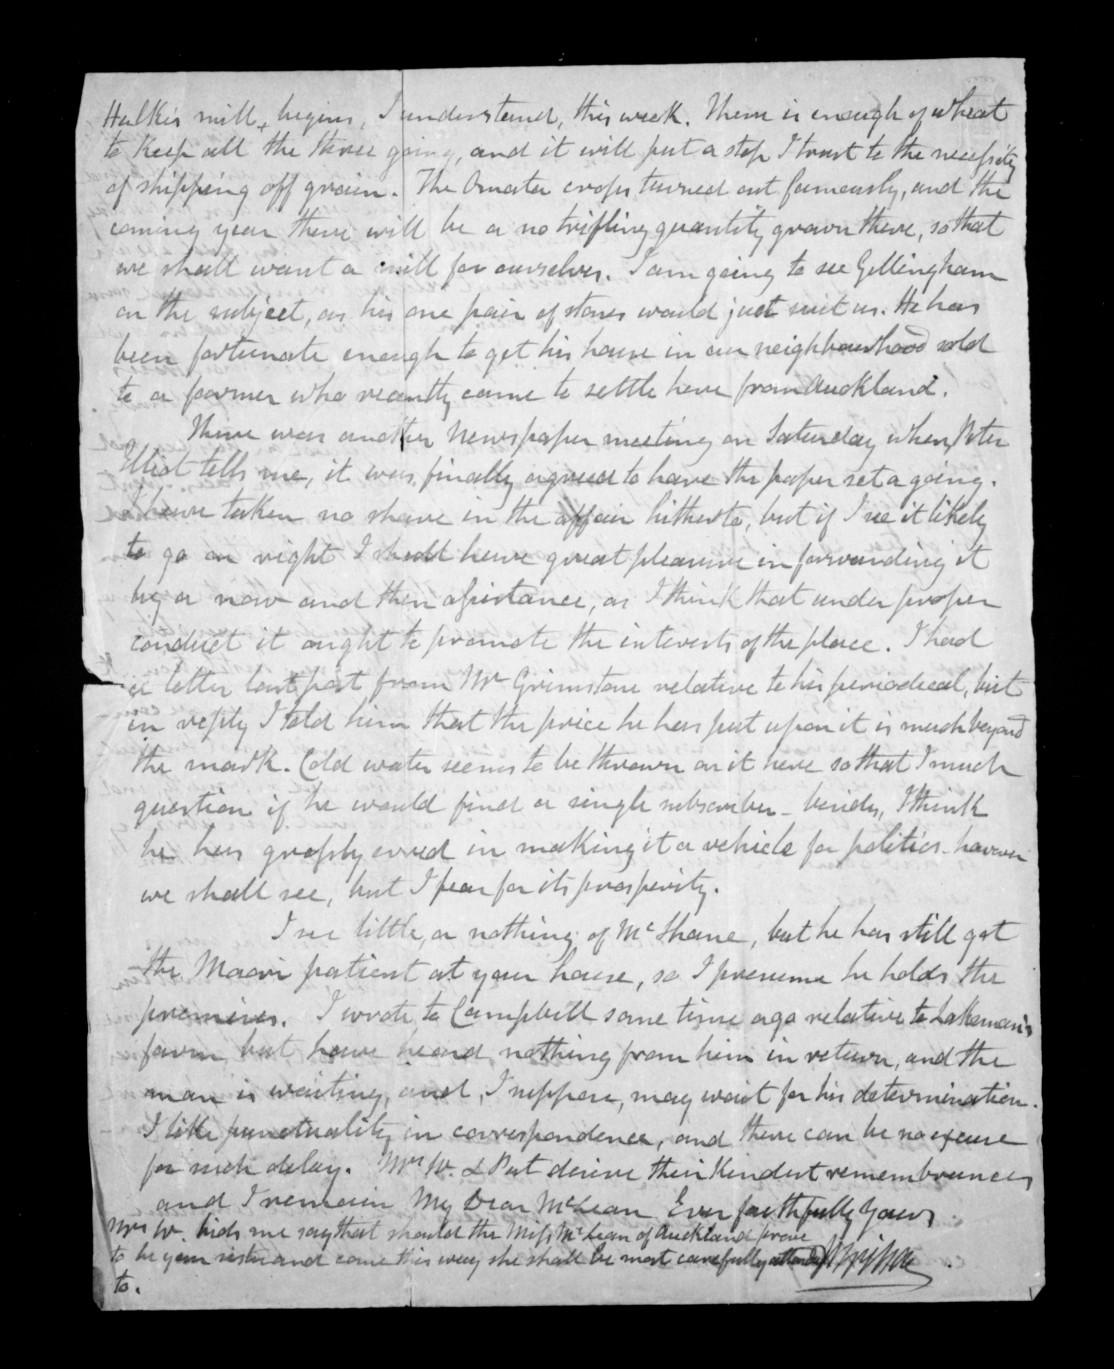 Hulkes mill, begins, I understand, this week. There is enough of wheat
to keep all the three going, and it will put a stop I trust to the necessity
of shipping off grain. The Omata crops turned out famously, and the
coming year there will be a no trifling quantity grown there, so that
we shall want a mill for ourselves. I am going to see Gillingham
on the subject, as his one pair of stones would just suit us. He has
been fortunate enough to get his house in our neighbourhood sold
to a farmer who recently came to settle here from Auckland.
There was another Newspaper meeting on Saturday when, Peter
Elliot tells me, it was finally agreed to have the paper set a going.
I have taken no share in the affair hitherto, but if I see it likely
to go on right I shall have great pleasure in forwarding it
by a now and then assistance, as I think that under proper
conduct it ought to promote the interests of the place. I had
a letter last post from Mr Grimstone relative to his periodical, but
in reply I told him that the price he has put upon it is much beyond
the mark. Cold water seems to be thrown on it here so that I much
question if he would find a single subscriber - besides, I think
he has grossly erred in making it a vehicle for politics - however
we shall see, but I fear for its prosperity.
I see little, or nothing of McShane, but he has still got
the Maori patient at your house, so I presume he holds the
premises. I wrote to Campbell some time ago relative to Lakeman's
farm, but have heard nothing from him in return, and the
man is waiting, and, I suppose, may wait for his determination.
I like punctuality in correspondence, and there can be no excuse
for such delay. Mrs W. & Pat desire their kindest remembrances
and I remain My Dear McLean Ever faithfully Yours
Mrs W. bids me say that should the Miss McLean of Auckland prove
to be your sister and come this way she shall be most carefully attended
to.